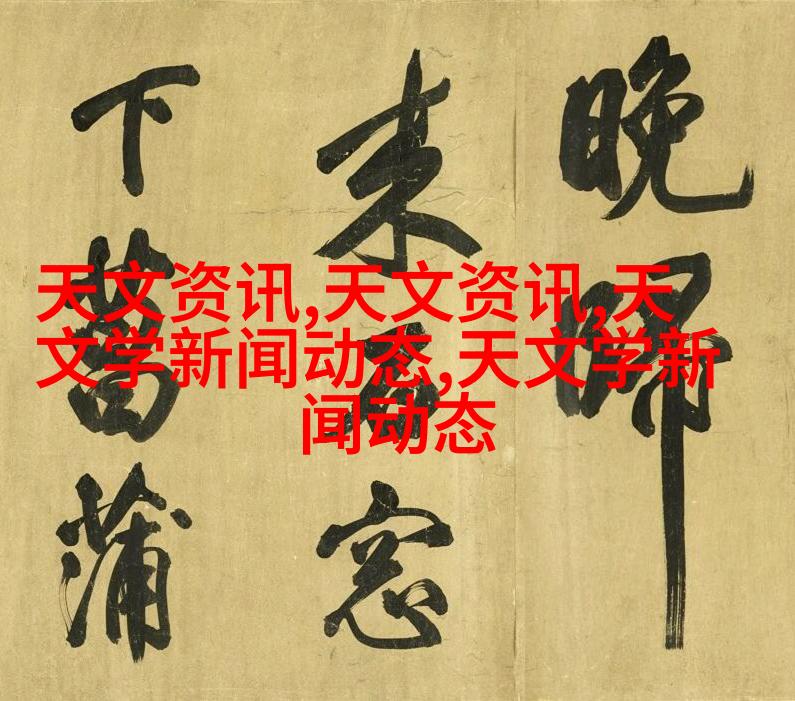 晚歸
来窓
下菖蒲
天文资讯,天文资讯,天
文学新闻动态,天文学新
闻动态